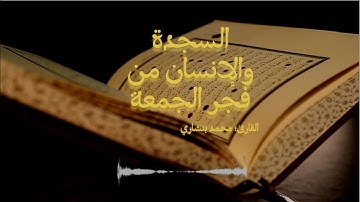 السجدة
والانسان من
فجر الجمعة
القارئ: محمد بشاري